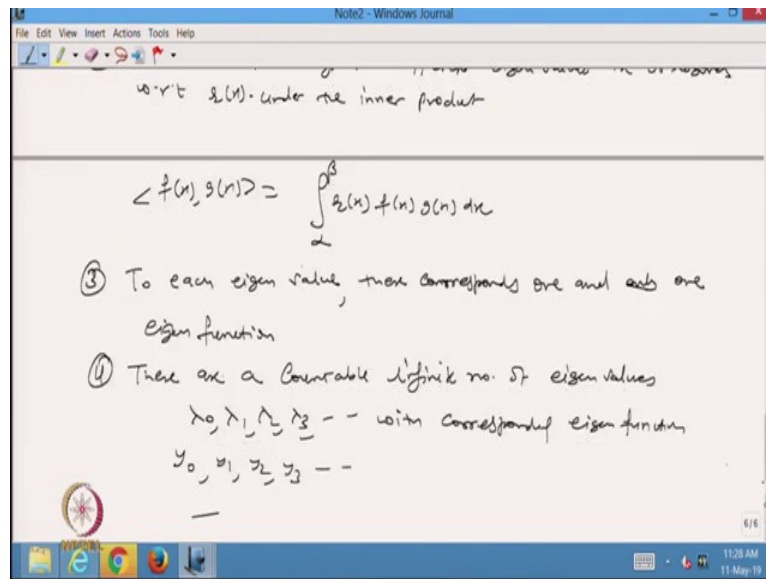 Note2 - Windows Journal
File Edit View Insert Actions Tools Help
w.r.t r(x). under the inner product
< f(x), g(x)> = ∫_α^β r(x) f(x) g(x) dx
③ To each eigen value, there corresponds one and only one
eigen function
④ There are a Countable infinite no. of eigen values
λ0, λ1, λ2, λ3 - - with corresponding eigen function
y0, y1, y2, y3 - -
6/6
NPTEL
11:28 AM
11-May-19